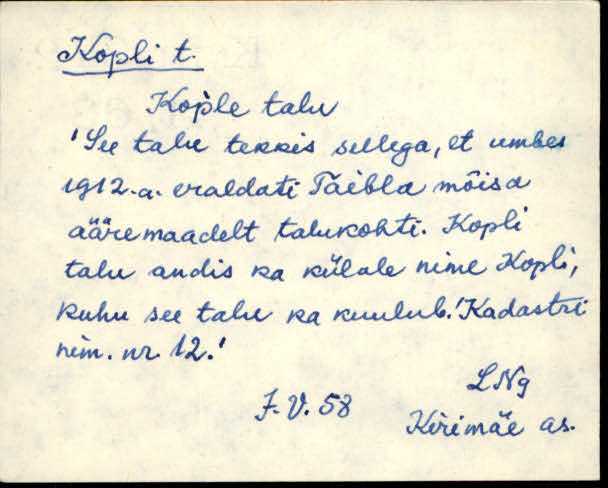 Kopli t.
Kop̀le talu
'See talu tekkis sellega, et umbes
1912.a. eraldati Taebla mõisa
ääremaadelt talukohti. Kopli
talu andis ka külale nime Kopli,
kuhu see talu ka kuulub.' Kadastri
nim. nr. 12.'
LNg
F. V. 58
Kirimäe as.